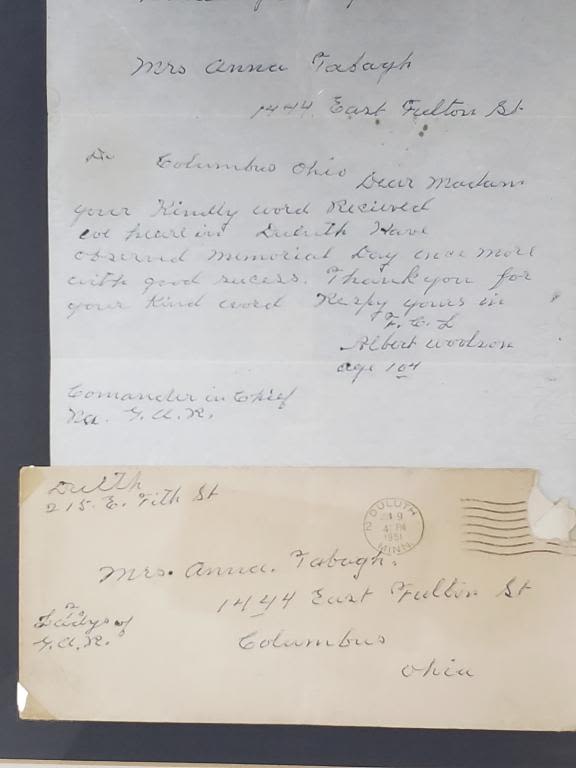 Mrs Anna Tabagh
1444 East Fulton St
Columbus Ohio
Dear Madam
your Kindly word Recieved
we hear in Duluth Have
observed Memorial Day once more
with good sucess. Thank you for
your Kind word Respy yours in
F. C. L
Albert Woolson
age 104
Comander in Chief
G. A. R.
Dulth
215. E. Fith St
DULUTH
9
4 PM
1951
MINN.
2
Mrs. Anna. Tabagh.
1444 East Fulton St
Ladys of
G. A. R.
Columbus
Ohio